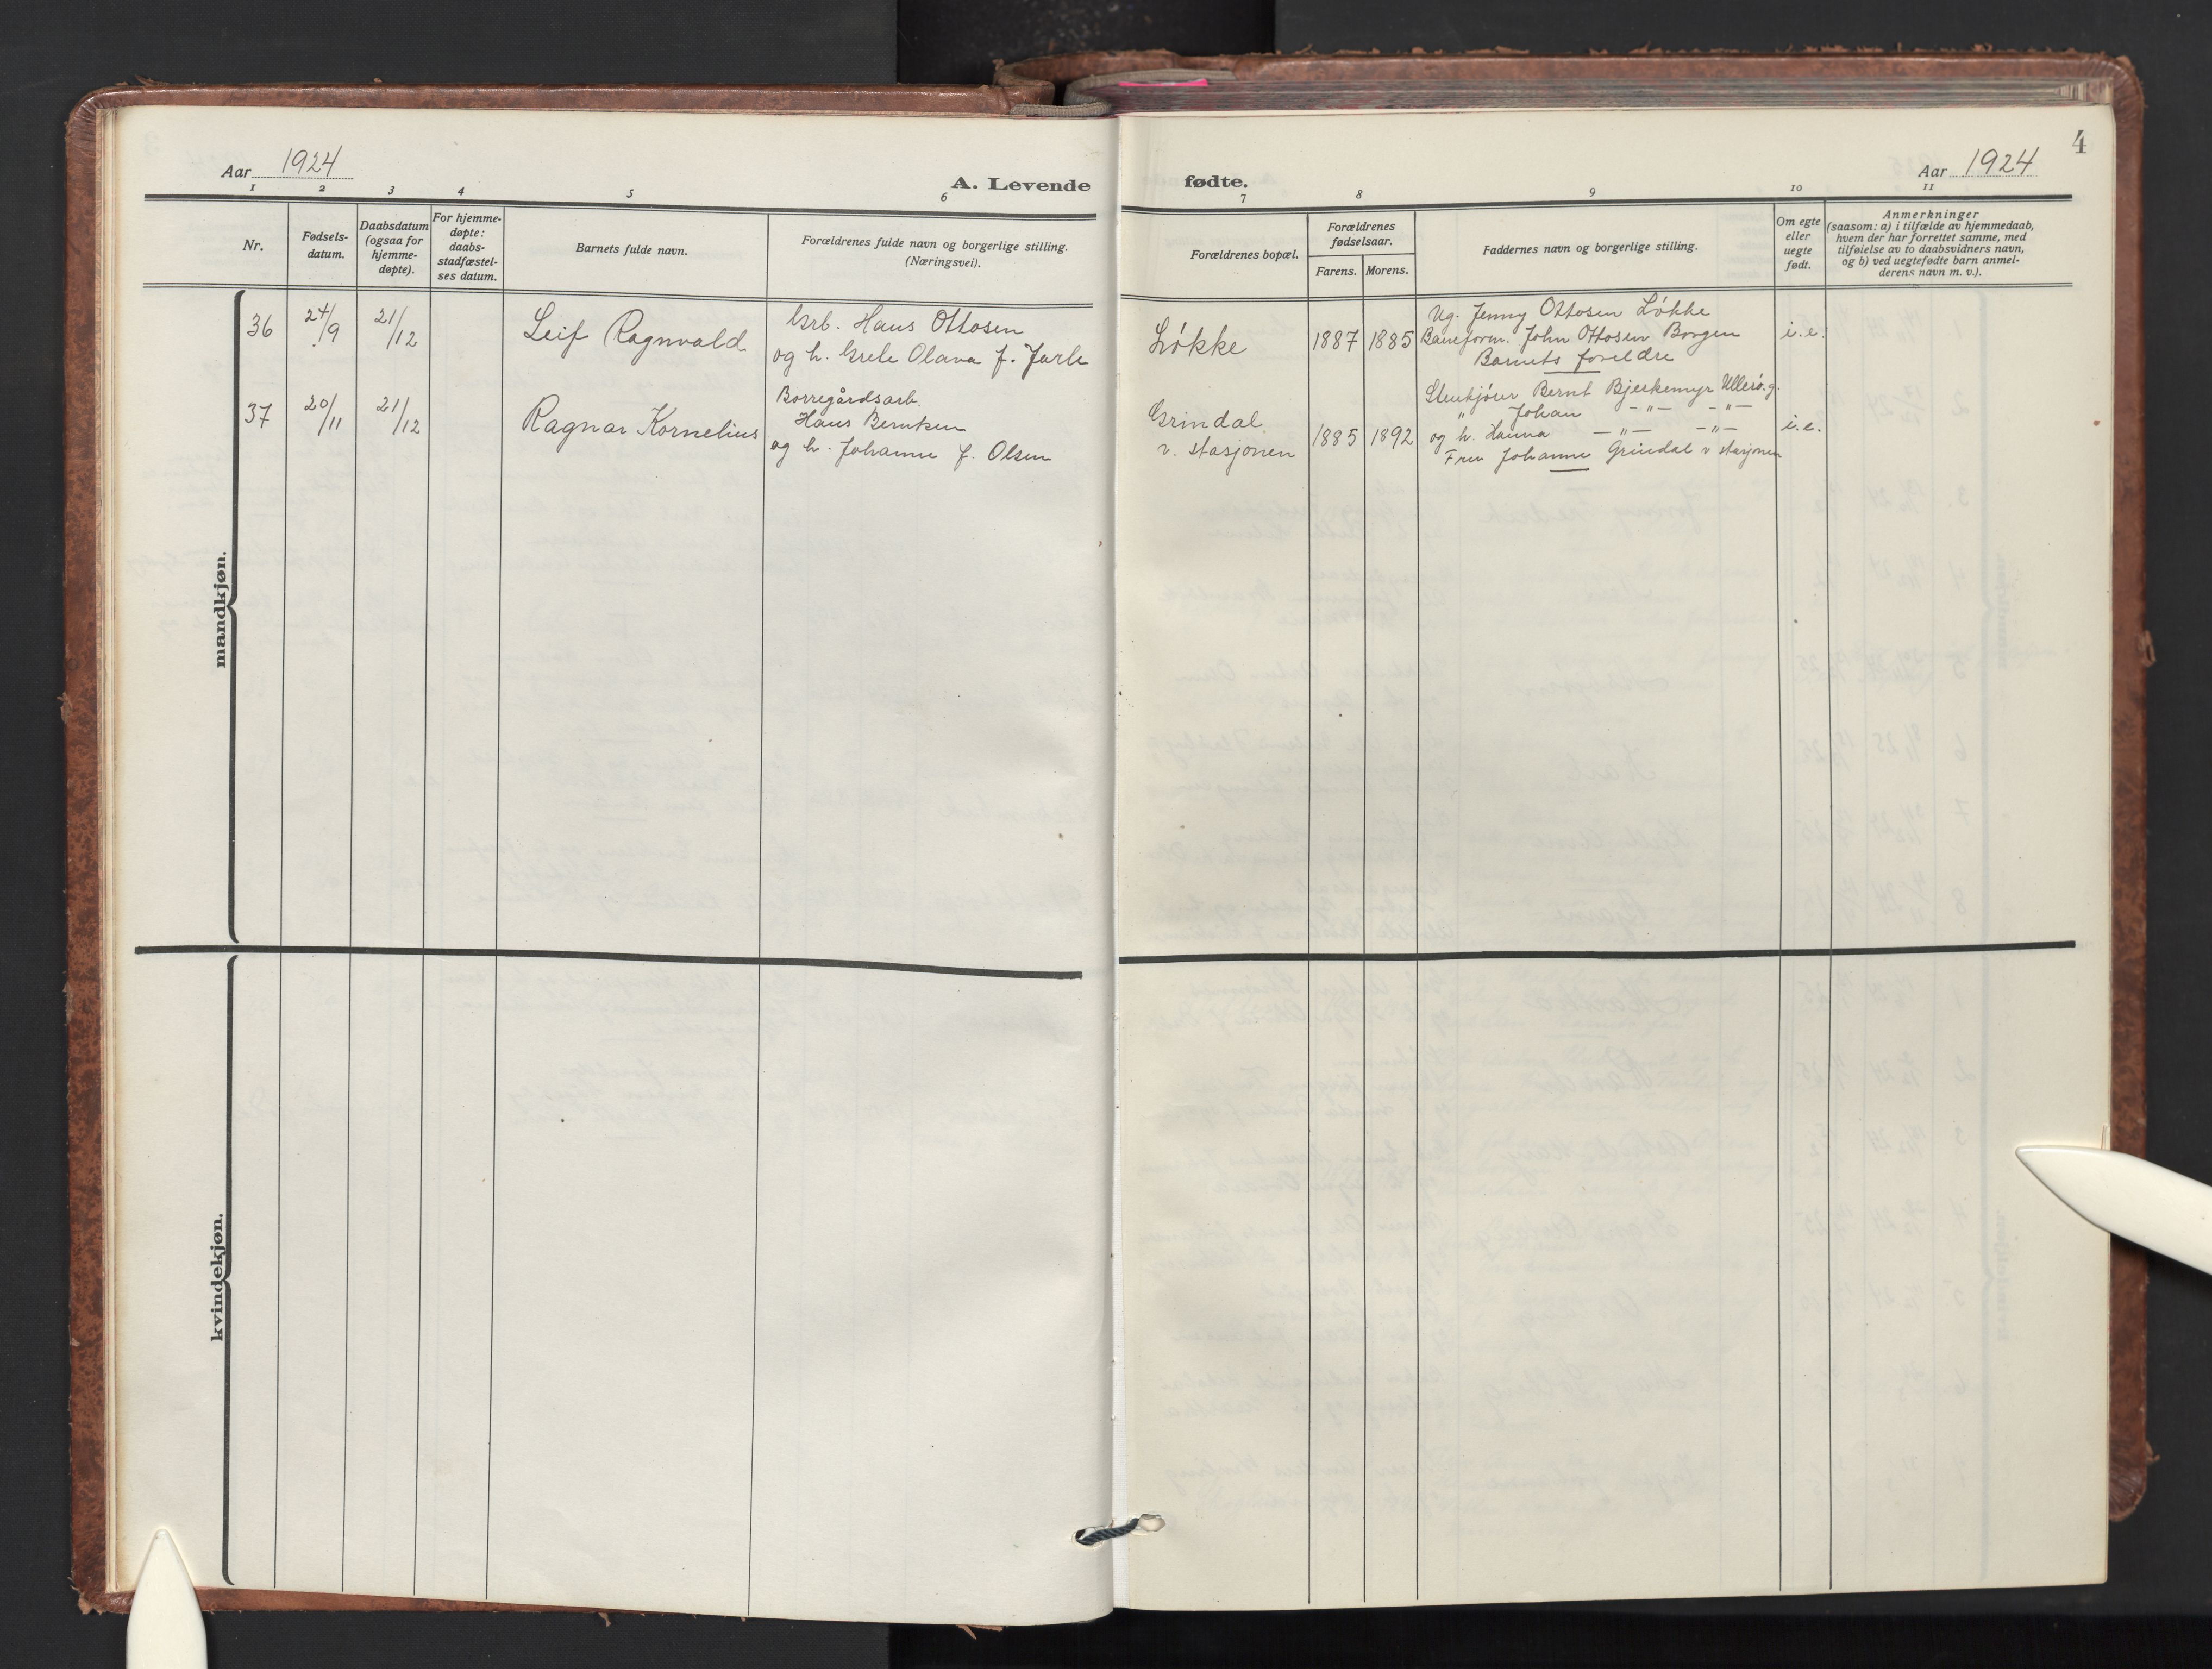 4
Aar 1924
A. Levende fødte.
Aar 1924
1 2 3 4 5 6 7 8 9 10 11
Nr.
Fødsels-
datum.
Daabsdatum
(ogsaa for
hjemme-
døpte).
For hjemme-
døpte:
daabs-
stadfæstel-
ses datum.
Barnets fulde navn.
Forældrenes fulde navn og borgerlige stilling.
(Næringsvei).
Forældrenes bopæl.
Forældrenes
fødselsaar.
Farens. Morens.
Faddernes navn og borgerlige stilling.
Om egte
eller
uegte
født.
Anmerkninger
(saasom: a) i tilfælde av hjemmedaab,
hvem der har forrettet samme, med
tilføielse av to daabsvidners navn,
og b) ved uegtefødte barn anmel-
derens navn m. v.).
mandkjøn.
36
24/9
21/12
Leif Ragnvald
Grb. Hans Ottosen
og h. Grete Olava f. Jarle
Løkke
1887 1885
Ug. Jenny Ottosen Løkke
Baneform. John Ottosen Borgen
Barnets foreldre
i. e.
37
20/11
21/12
Ragnar Kornelius
Borregårdsarb.
Hans Berntsen
og h. Johanne f. Olsen
Grindal
v. stasjonen
1885 1892
Stenkjører Bernt Bjerkemyr Ullerø.g.
" Johan -"- -"-
og h. Hanna -"- -"-
Fru Johanne Grindal v stasjonen
i. e.
kvindekjøn.